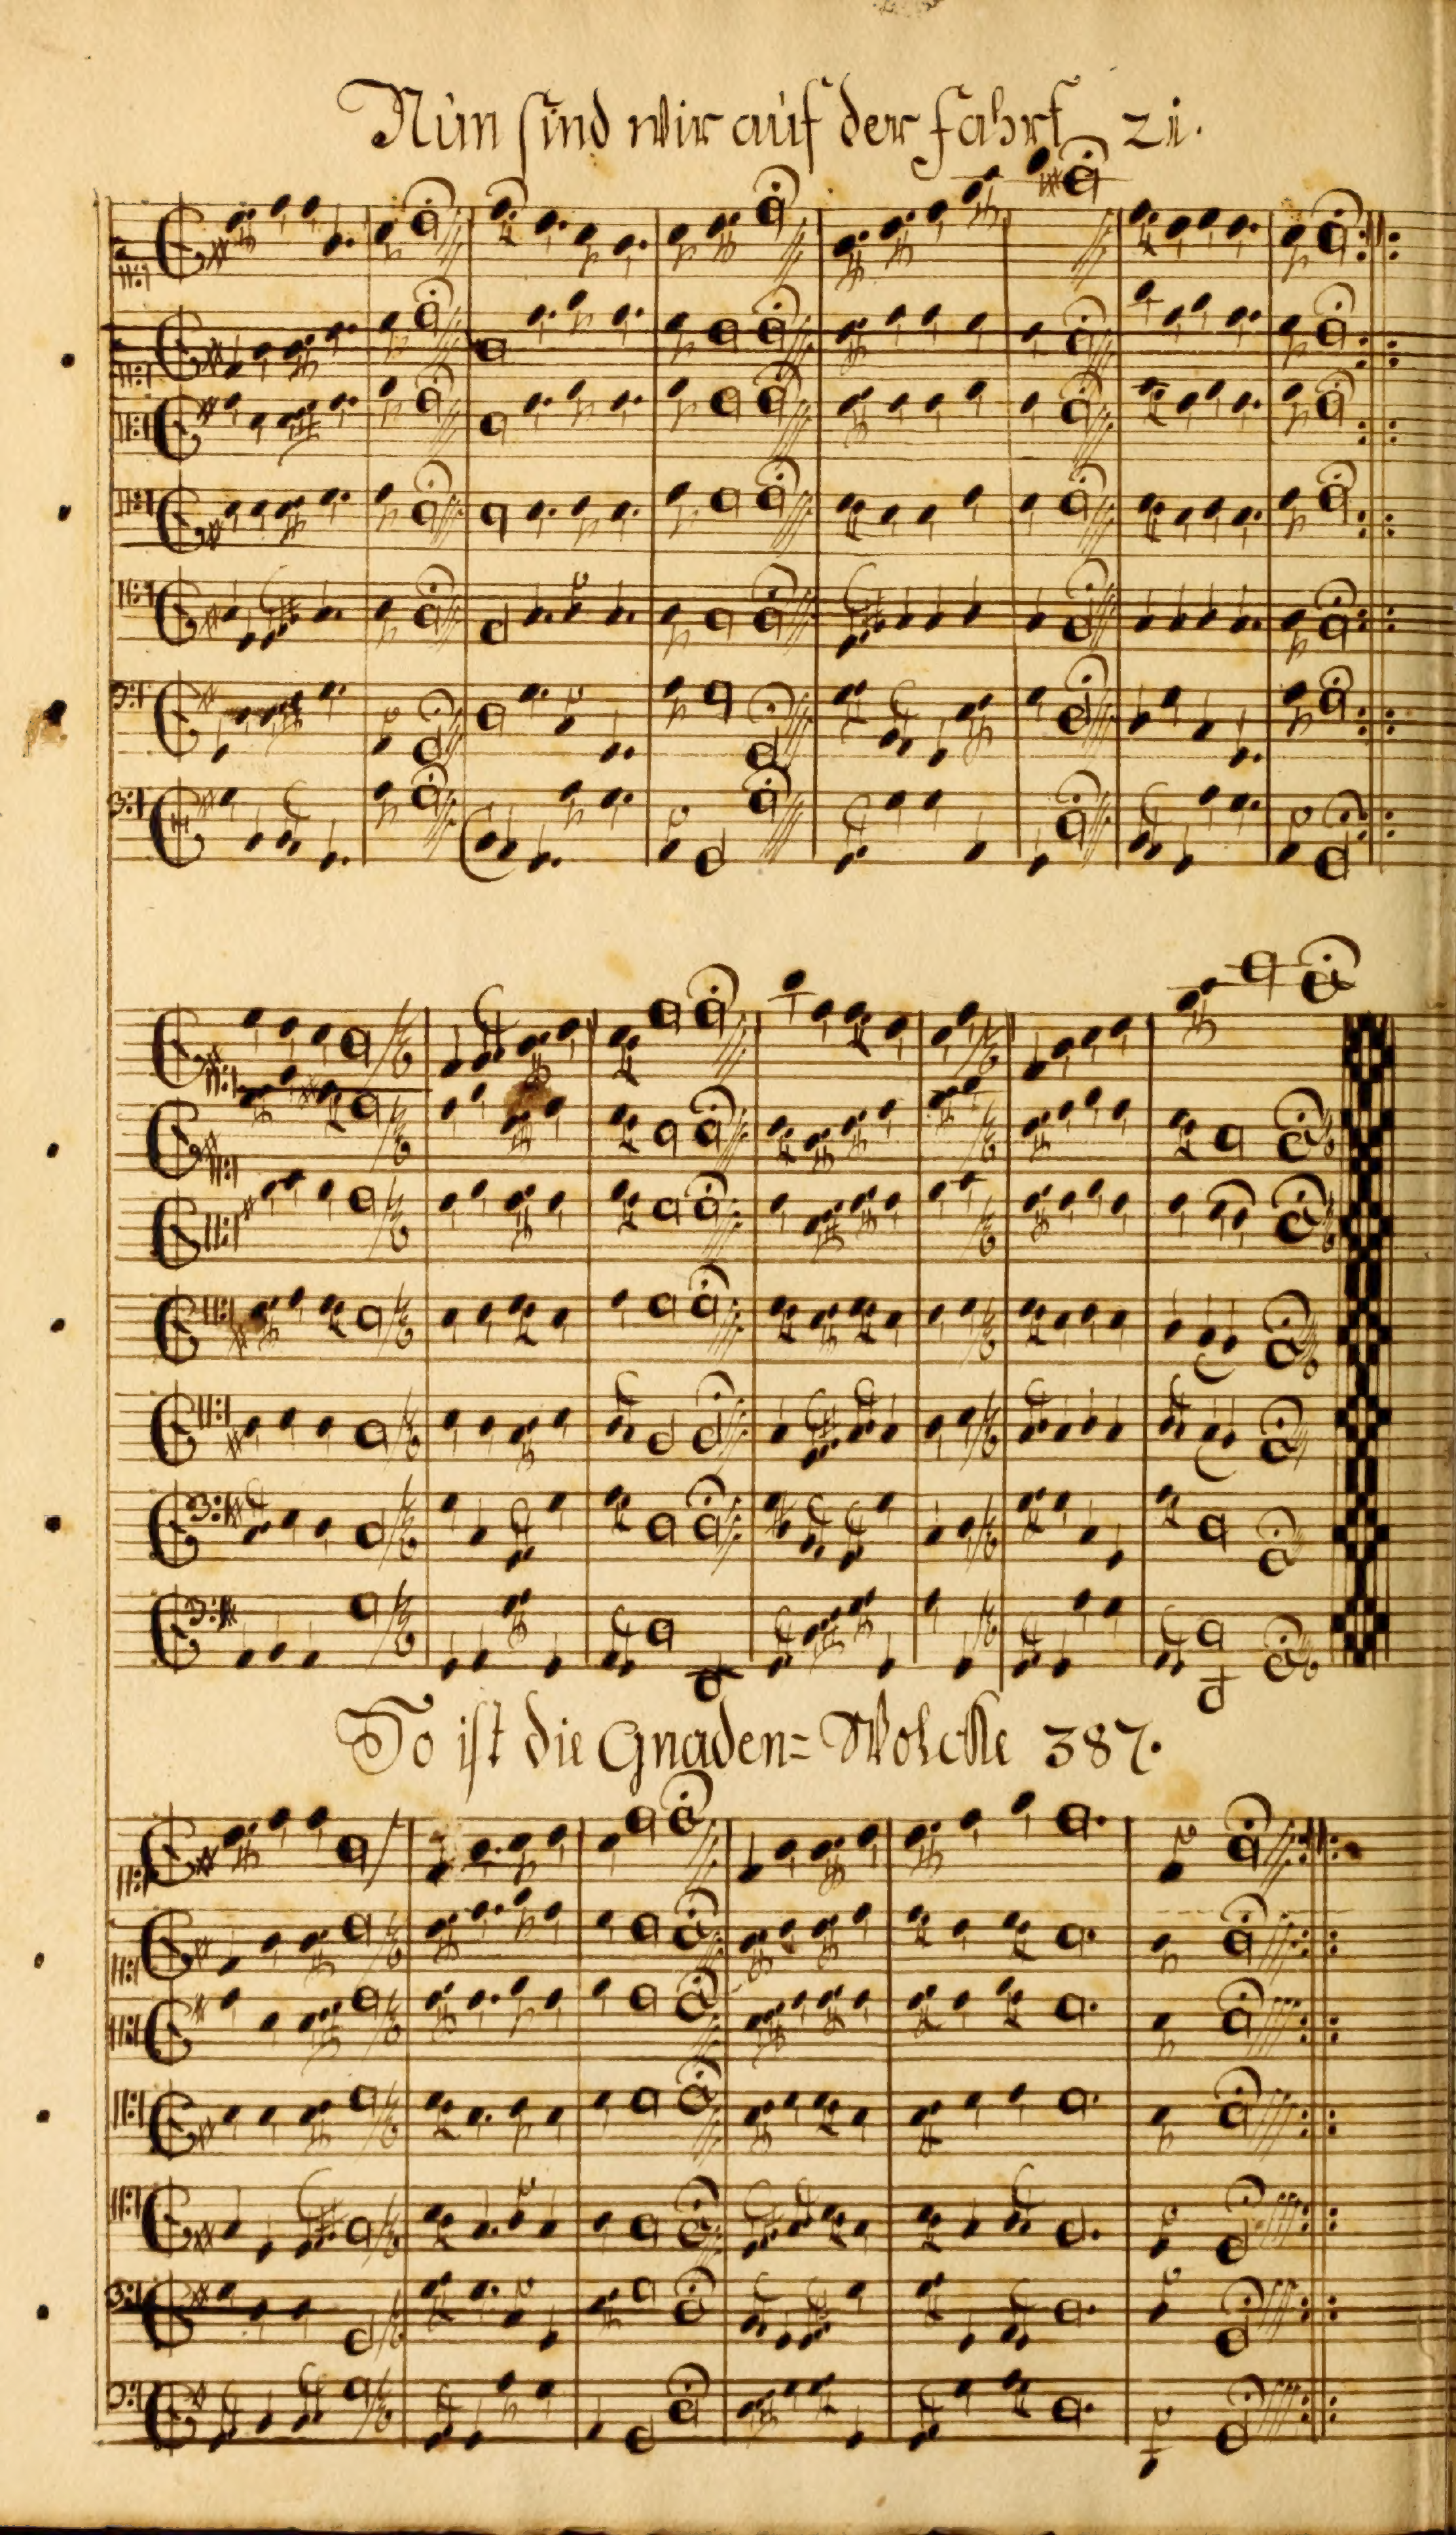 Nun sind wir auf der fahrt 21.
So ist die Gnaden= Wolcke 387.